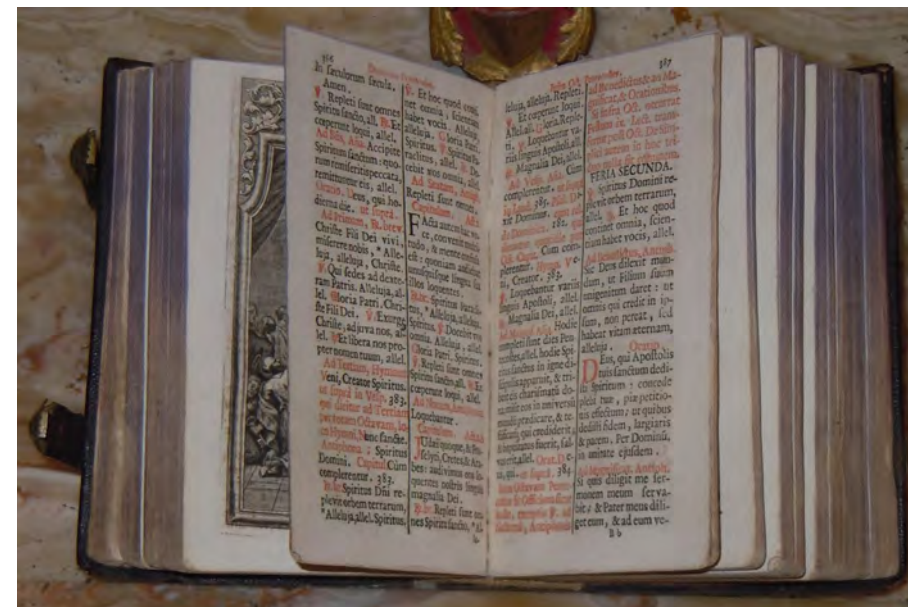 386
In sæculorum sæcula,
Amen.
℣. Repleti sunt omnes
Spiritu sancto, all. ℟. Et
cœperunt loqui, allel.
Ad Bñs, Aña. Accipite
Spiritum sanctum: quo-
rum remiseritis peccata,
remittuntur eis, allel.
Oratio. Deus, qui ho-
dierna die. ut supra.
Ad Primam, ℟. brev.
Christe Fili Dei vivi,
miserere nobis, * Alle-
luja, alleluja, Christe.
℣. Qui sedes ad dexte-
ram Patris. Alleluja, al-
lel. Gloria Patri, Chri-
ste Fili Dei. ℣. Exurge
Christe, adjuva nos, al-
lel. ℟. Et libera nos pro-
pter nomen tuum, allel.
Ad Tertiam, Hymnus
Veni, Creator Spiritus.
ut supra in Vesp. 383.
qui dicitur ad Tertiam
per totam Octavam, lo-
co Hymni, Nunc sancte.
Antiphona: Spiritus
Domini. Capitul. Cùm
complerentur. 383.
℟. br. Spiritus Dñi re-
plevit orbem terrarum,
* Alleluja, allel. Spiritus.
℣. Et hoc quod conti-
net omnia, scientiam
habet vocis. Alleluja,
alleluja. Gloria Patri,
Spiritus. ℣. Spiritus Pa-
raclitus, allel. ℟. Do-
cebit vos omnia, allel.
Ad Sextam, Antiph.
Repleti sunt omnes.
Capitulum.
FActa autem hac vo-
ce, convenit multi-
tudo, & mente confusa
est: quoniam audiebat
unusquisque lingua sua
illos loquentes.
℟. br. Spiritus Paracli-
tus, * Alleluja, alleluja.
Spiritus. ℣. Docebit vos
omnia. Alleluja, allel.
Gloria Patri. Spiritus.
℣. Repleti sunt omnes
Spiritu sancto, all. ℟. Et
cœperunt loqui, allel.
Ad Nonam, Antiphona
Loquebantur.
Capitulum.
JUdæi quoque, & Pro-
selyti, Cretes, & Ara-
bes: audivimus eos lo-
quentes nostris linguis
magnalia Dei.
℟. br. Repleti sunt om-
nes Spiritu sancto, * Al-
387
Infra Oct. Pentecostes.
leluja, alleluja. Repleti.
℣. Et cœperunt loqui.
Allel. all. Gloria. Reple-
ti. ℣. Loquebantur va-
riis linguis Apostoli, all.
℟. Magnalia Dei, allel.
Ad Vesp. Aña. Cùm
complerentur. ut supra
in Laud. 385. Psal. Di-
xit Dominus.
Cùm com-
plerentur. Hymn. Ve-
ni, Creator. 383.
℣. Loquebantur variis
linguis Apostoli, allel.
℟. Magnalia Dei, allel.
Ad Magnif. Aña. Hodie
completi sunt dies Pen-
tecostes, allel. hodie Spi-
ritus sanctus in igne di-
scipulis apparuit, & tri-
buit eis charismatum do-
na: misit eos in universum
mundum prædicare, & te-
stificari, qui crediderit,
& baptizatus fuerit, sal-
vus erit, allel. Orat. De-
us, qui. ut supra. 384.
ad Benedictus, & ad Ma-
gnificat, & Orationibus.
Si infra Oct. occurrat
Festum ix. Lect. trans-
fertur post Oct. De Sim-
plici autem in hoc tri-
duo nihil fit
FERIA SECUNDA.
℣. Spiritus Domini re-
plevit orbem terrarum,
allel. ℟. Et hoc quod
continet omnia, scien-
tiam habet vocis, allel.
Ad Benedictus, Antiph.
Sic Deus dilexit mun-
dum, ut Filium suum
unigenitum daret: ut
omnis qui credit in ip-
sum, non pereat, sed
habeat vitam æternam,
alleluja. Oratio.
DEus, qui Apostolis
tuis sanctum dedi-
sti Spiritum: concede
plebi tuæ, piæ petitio-
nis effectum; ut quibus
dedisti fidem, largiaris
& pacem. Per Dominū,
in unitate ejusdem.
Ad Magnificat, Antiph.
Si quis diligit me ser-
monem meum serva-
bit; & Pater meus dili-
get eum, & ad eum ve-
Bb